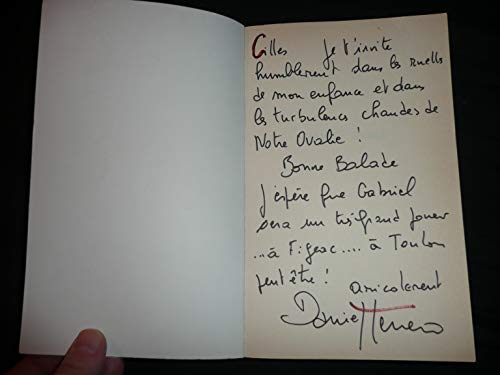 Gilles je t'invite
humblement dans les ruelles
de mon enfance et dans
les turbulences chaudes de
Notre Ovalie !
Bonne Balade
J'espère que Gabriel
sera un très grand joueur
...à Figeac.... à Toulon
peut être !
amicalement
Daniel Herrero